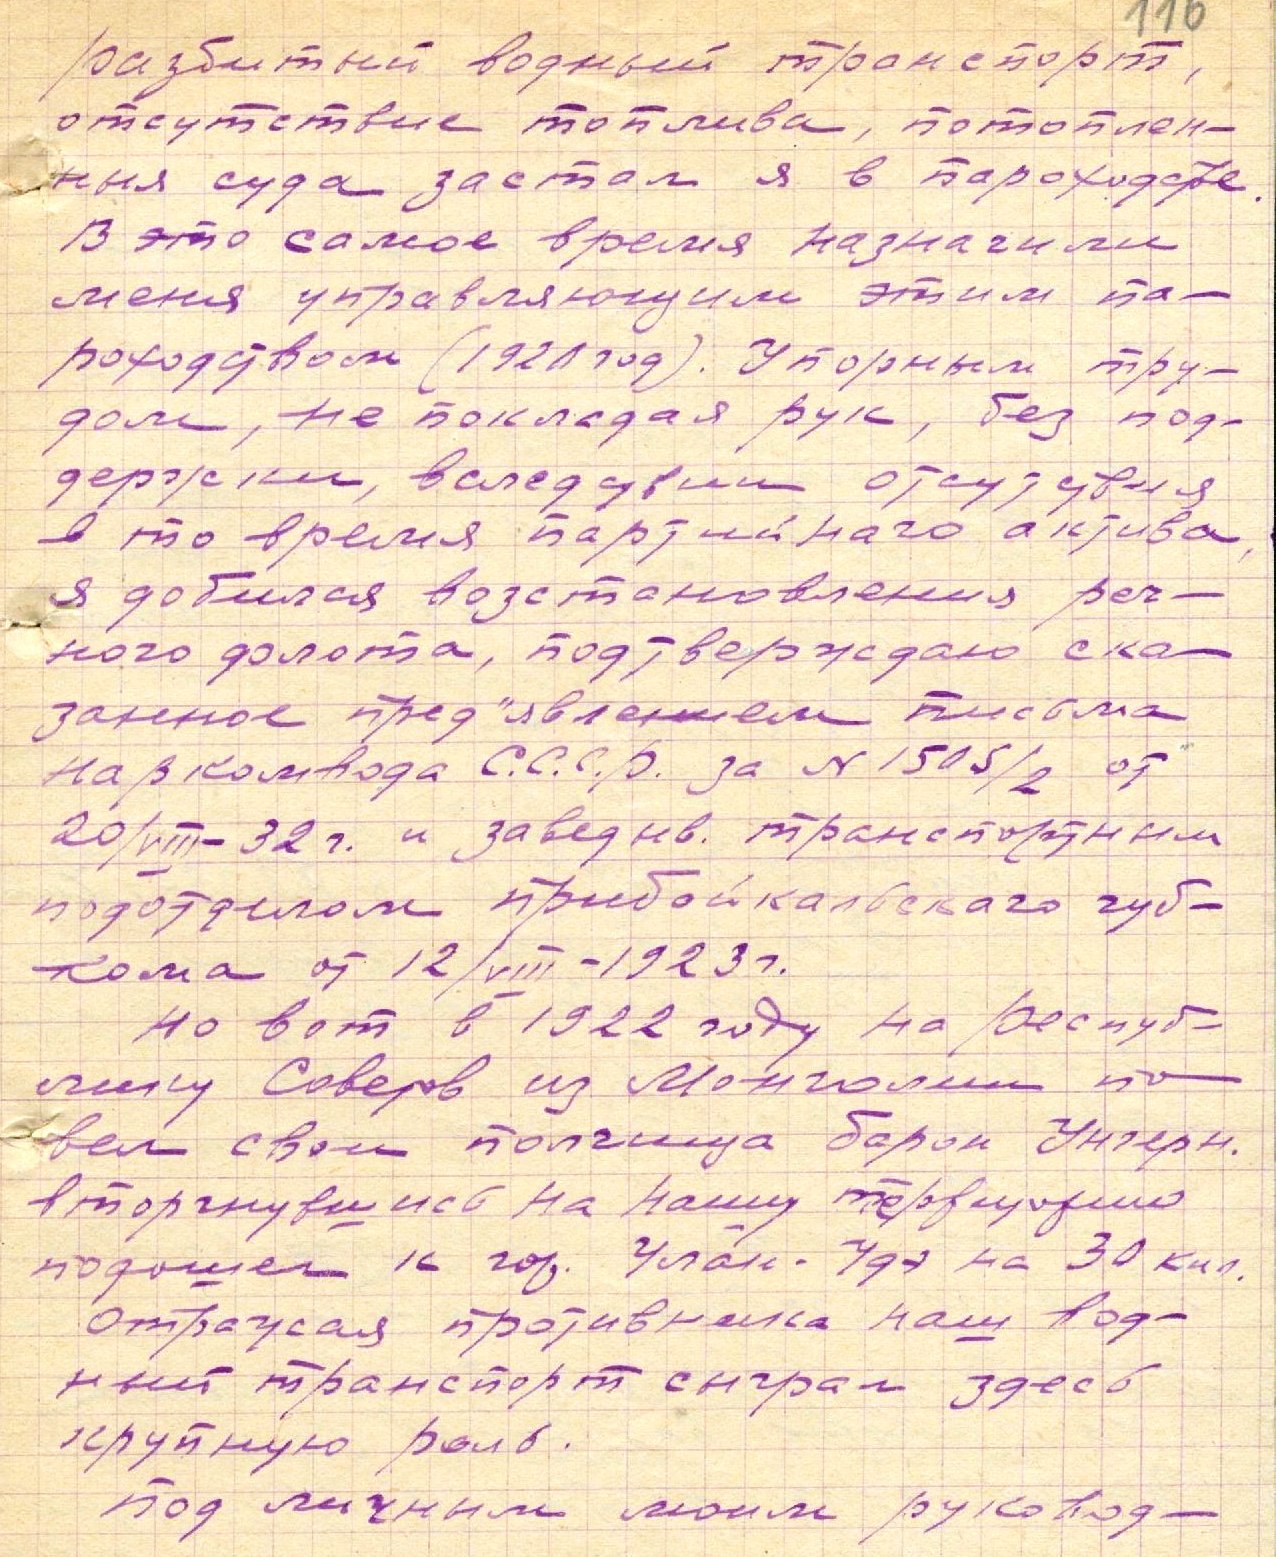 116
разбитый водный транспорт,
отсутствие топлива, потоплен-
ныя суда застал я в пароходстве.
В это самое время назначили
меня управляющим этим па-
роходством (1921 год). Упорным тру-
дом, не покладая рук, без под-
держки, вследствии отсутствия
в то время партийнаго актива,
я добился возстановления реч-
ного флота, подтверждаю ска-
занное пред"явлением письма
Наркомвода С.С.С.Р. за N 1505/2 от
20/VIII-32 г. и заведыв. транспортным
подотделом прибайкальскаго губ-
кома от 12/VIII-1923 г.
Но вот в 1922 году на Респуб-
лику Советов из Монголии по-
вел свои полчища барон Унгерн.
вторгнувшись на нашу территорию
подошел к гор. Улан-Удэ на 30 кил.
Отражая противника наш вод-
ный транспорт сыграл здесь
крупную роль.
Под личным моим руковод-